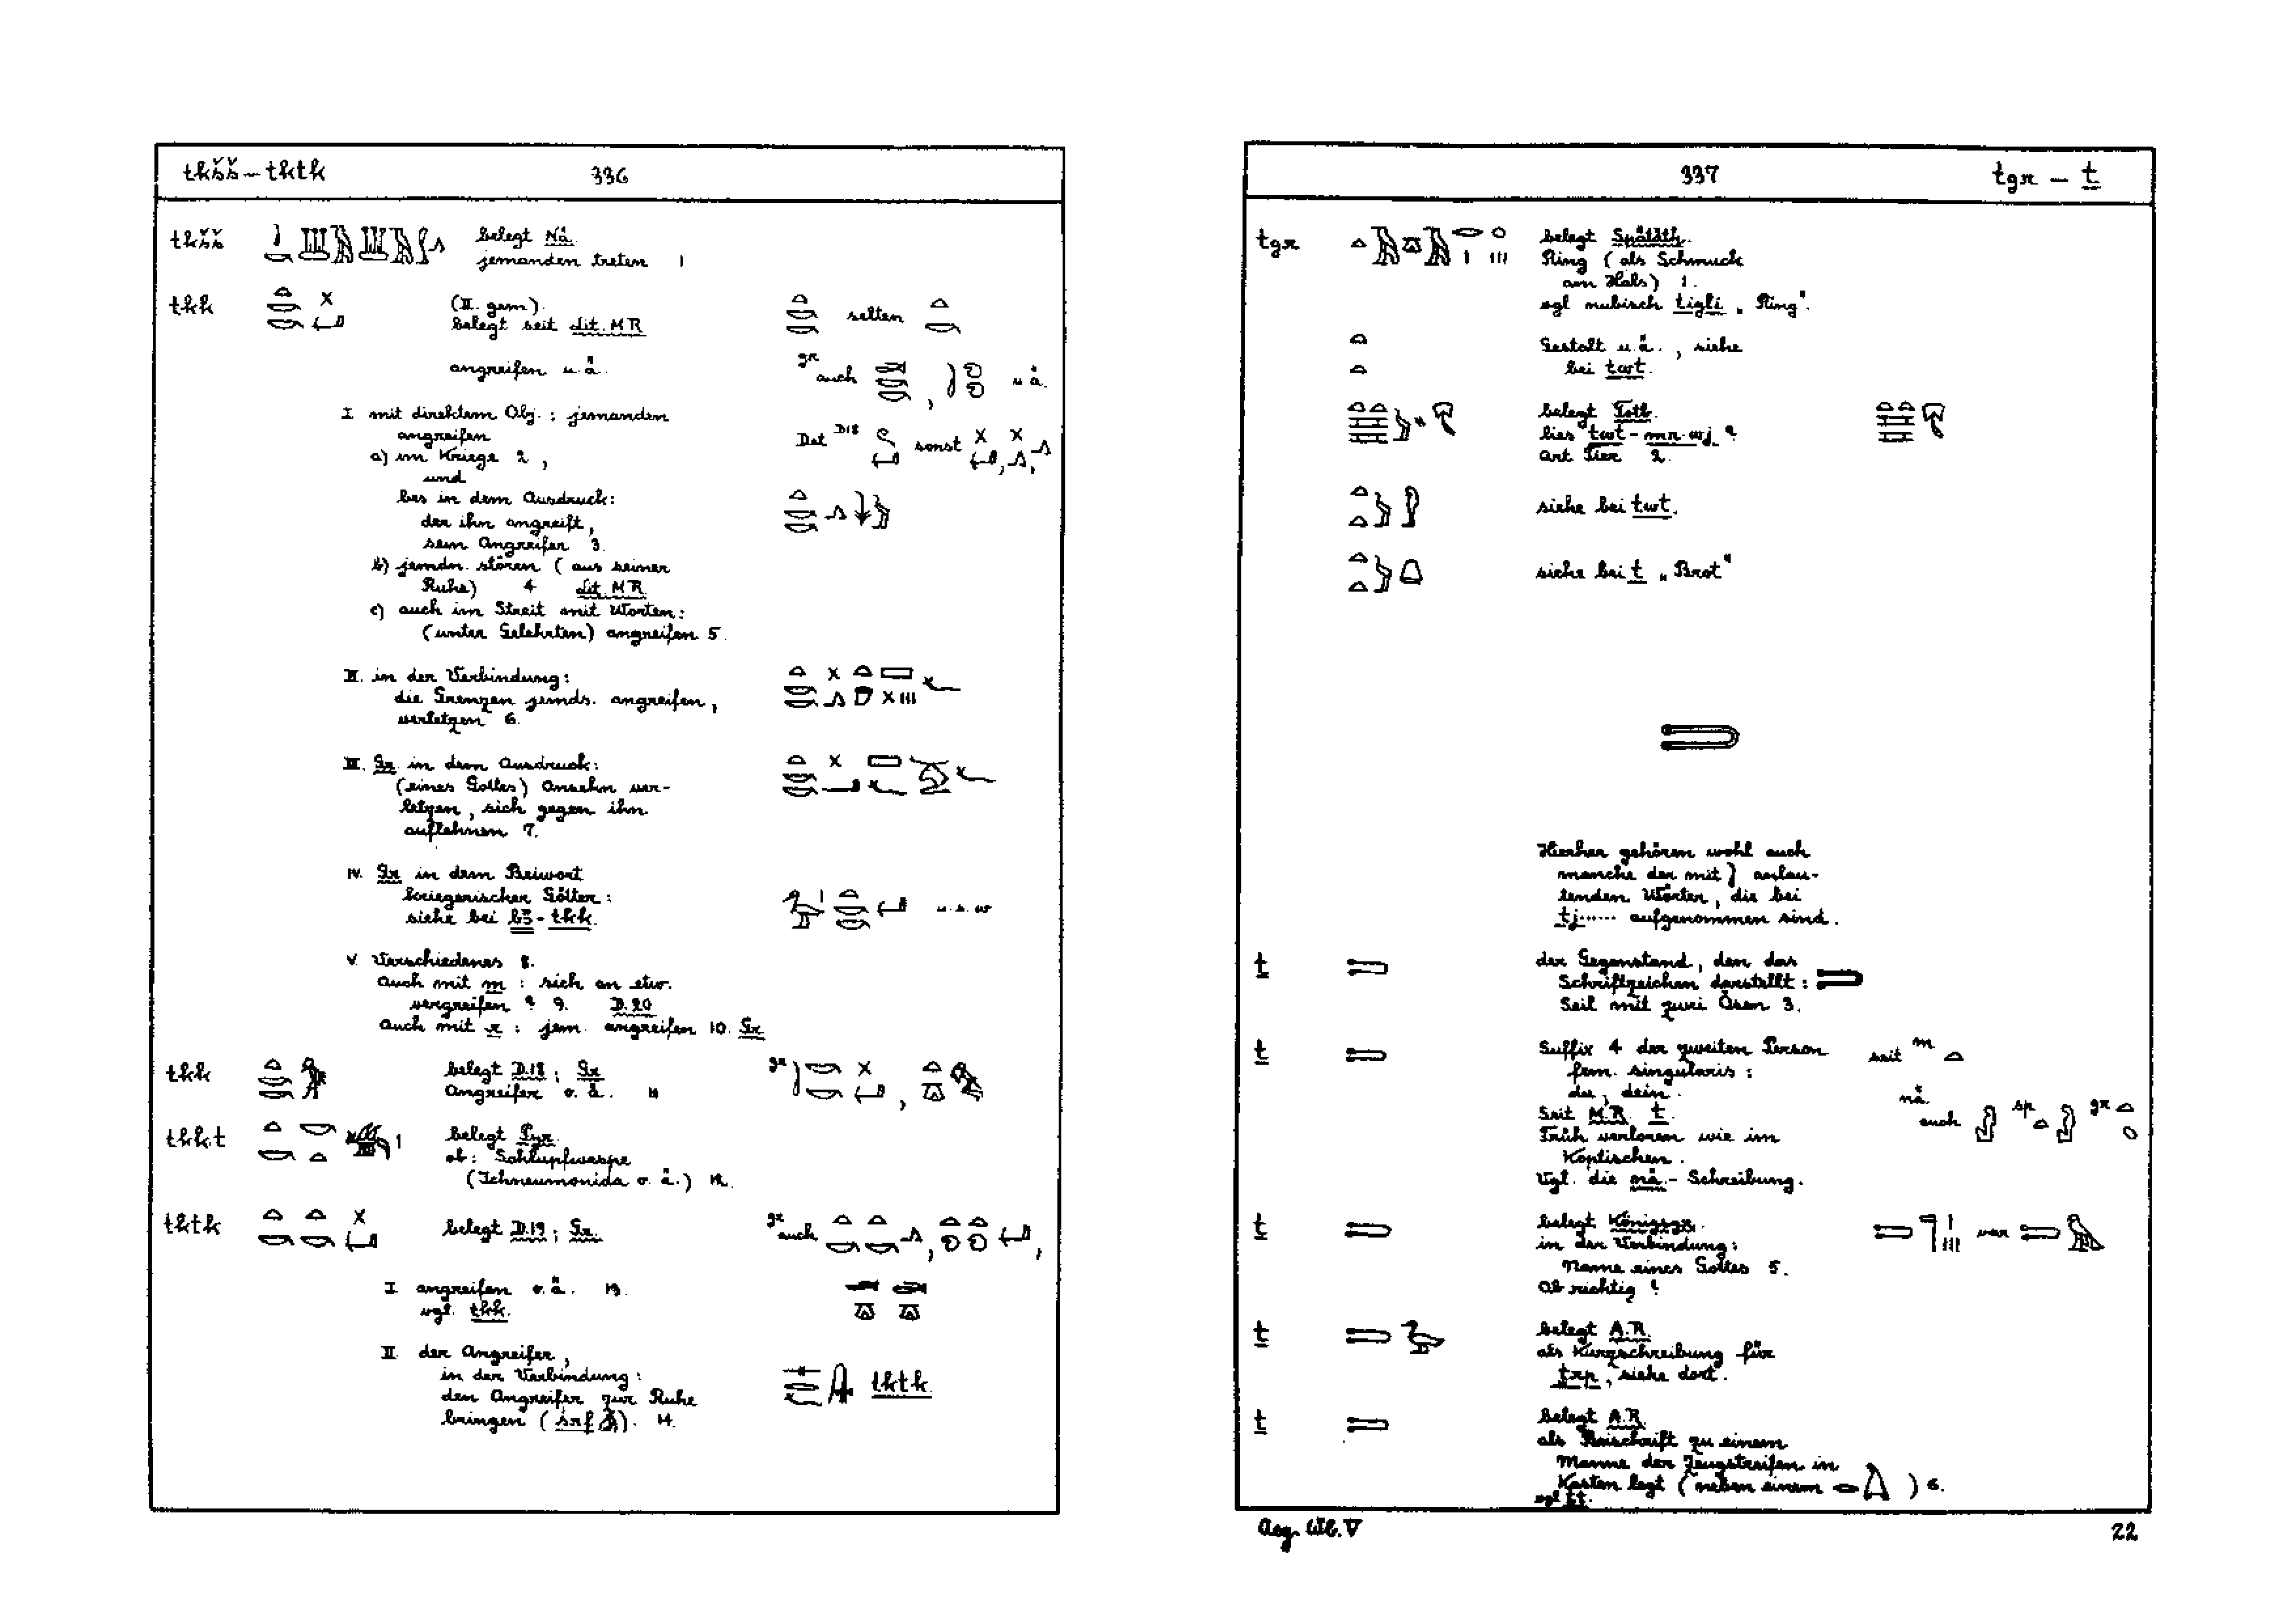 tkšš – tktk 336
tkšš belegt Nä.
jemanden treten 1
tkk (II. gem).
belegt seit Lit. MR selten
angreifen u. ä. gr auch , u. ä.
I. mit direktem Obj.: jemanden
angreifen
Det D18 sonst , ,
a) im Kriege 2,
und
bes in dem Ausdruck:
der ihn angreift,
sein Angreifer 3.
b) jemdn. stören (aus seiner
Ruhe) 4 Lit. MR
c) auch im Streit mit Worten:
(unter Gelehrten) angreifen 5.
II. in der Verbindung:
die Grenzen jemds. angreifen,
verletzen 6.
III. Gr. in dem Ausdruck:
(eines Gottes) Ansehn ver-
letzen, sich gegen ihn
auflehnen 7.
IV. Gr. in dem Beiwort
kriegerischer Götter:
siehe bei b3-tkk. u.s.w
V. Verschiedenes 8.
Auch mit m: sich an etw.
vergreifen? 9. D.20
Auch mit r: jem. angreifen 10. Gr.
tkk belegt D.18; Gr. gr ,
Angreifer o. ä. 11
tkkt belegt Pyr.
ob: Schlupfwespe
(Ichneumonida o. ä.) 12.
tktk belegt D.19; Gr. gr auch , ,
I angreifen o. ä. 13.
vgl. tkk.
II der Angreifer,
in der Verbindung: tktk
den Angreifer zur Ruhe
bringen (srf). 14.
337 tgr – ṯ
tgr belegt Spätäth.
Ring (als Schmuck
am Hals) 1.
vgl nubisch tigli „Ring".
Gestalt u. ä., siehe
bei twt.
belegt Totb.
lies twt-mr-wj?
Art Tier 2.
siehe bei twt.
siehe bei t „Brot"
Hierher gehören wohl auch
manche der mit anlau-
tenden Wörter, die bei
tj...... aufgenommen sind.
ṯ der Gegenstand, den das
Schriftzeichen darstellt:
Seil mit zwei Ösen 3.
ṯ Suffix 4 der zweiten Person seit m
fem. singularis:
du, dein. nä. auch sp gr
Seit M.R. t.
Früh verloren wie im
Koptischen.
Vgl. die nä.-Schreibung.
ṯ belegt Königsgr. var
in der Verbindung:
Name eines Gottes 5.
Ob richtig?
ṯ belegt A.R.
als Kurzschreibung für
ṯrp, siehe dort.
ṯ belegt A.R.
als Beischrift zu einem
Manne der Zeugstreifen in
Kasten legt (neben einem ) 6.
vgl ṯt.
Aeg. Wb. V 22